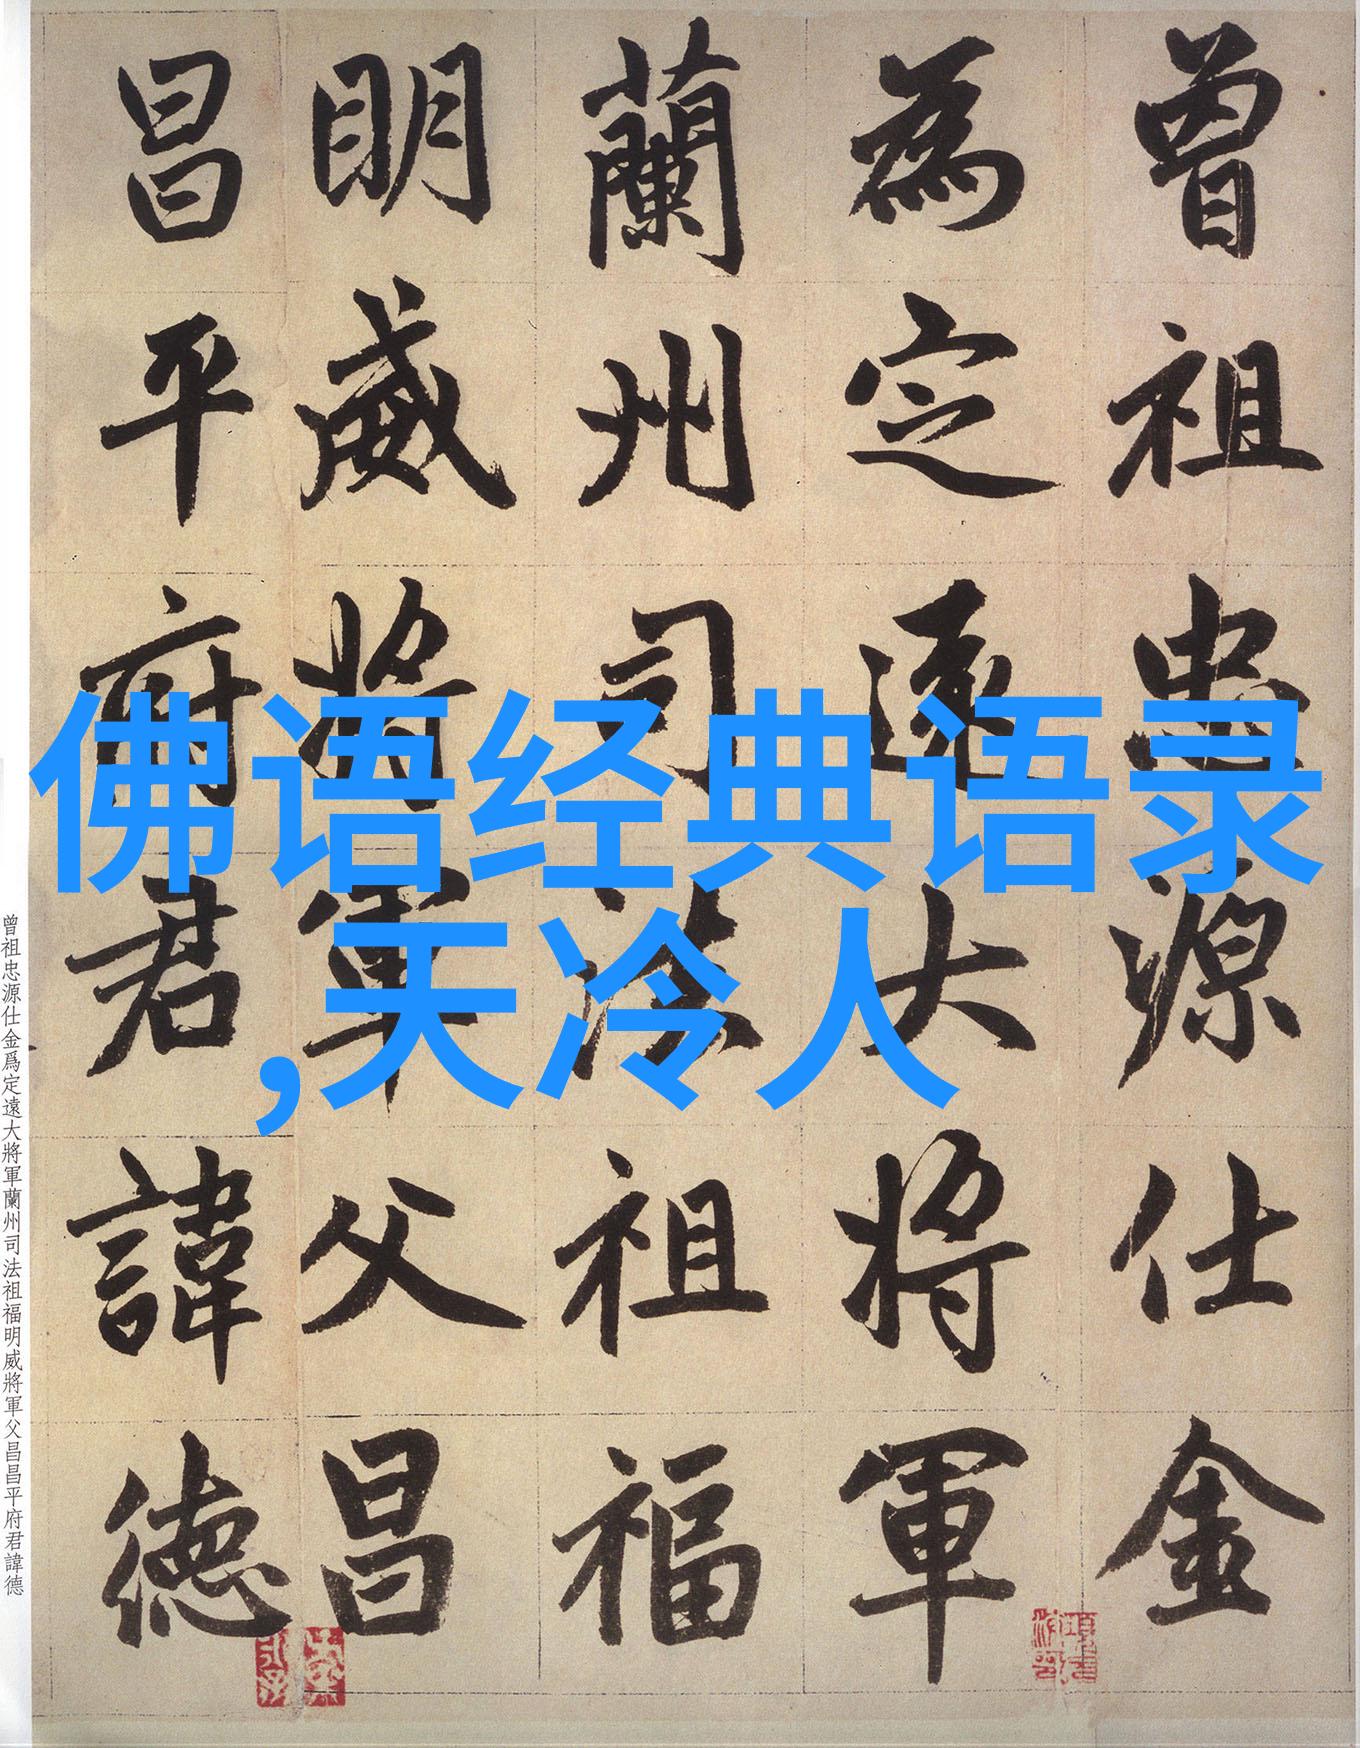 曾祖忠源仕金
為定遠大將軍
蘭州司法祖福
明威將軍父昌
昌平府君諱德
佛语经典语录
,天冷人
曾祖忠源仕金爲定遠大將軍蘭州司法祖福明威將軍父昌昌平府君諱德